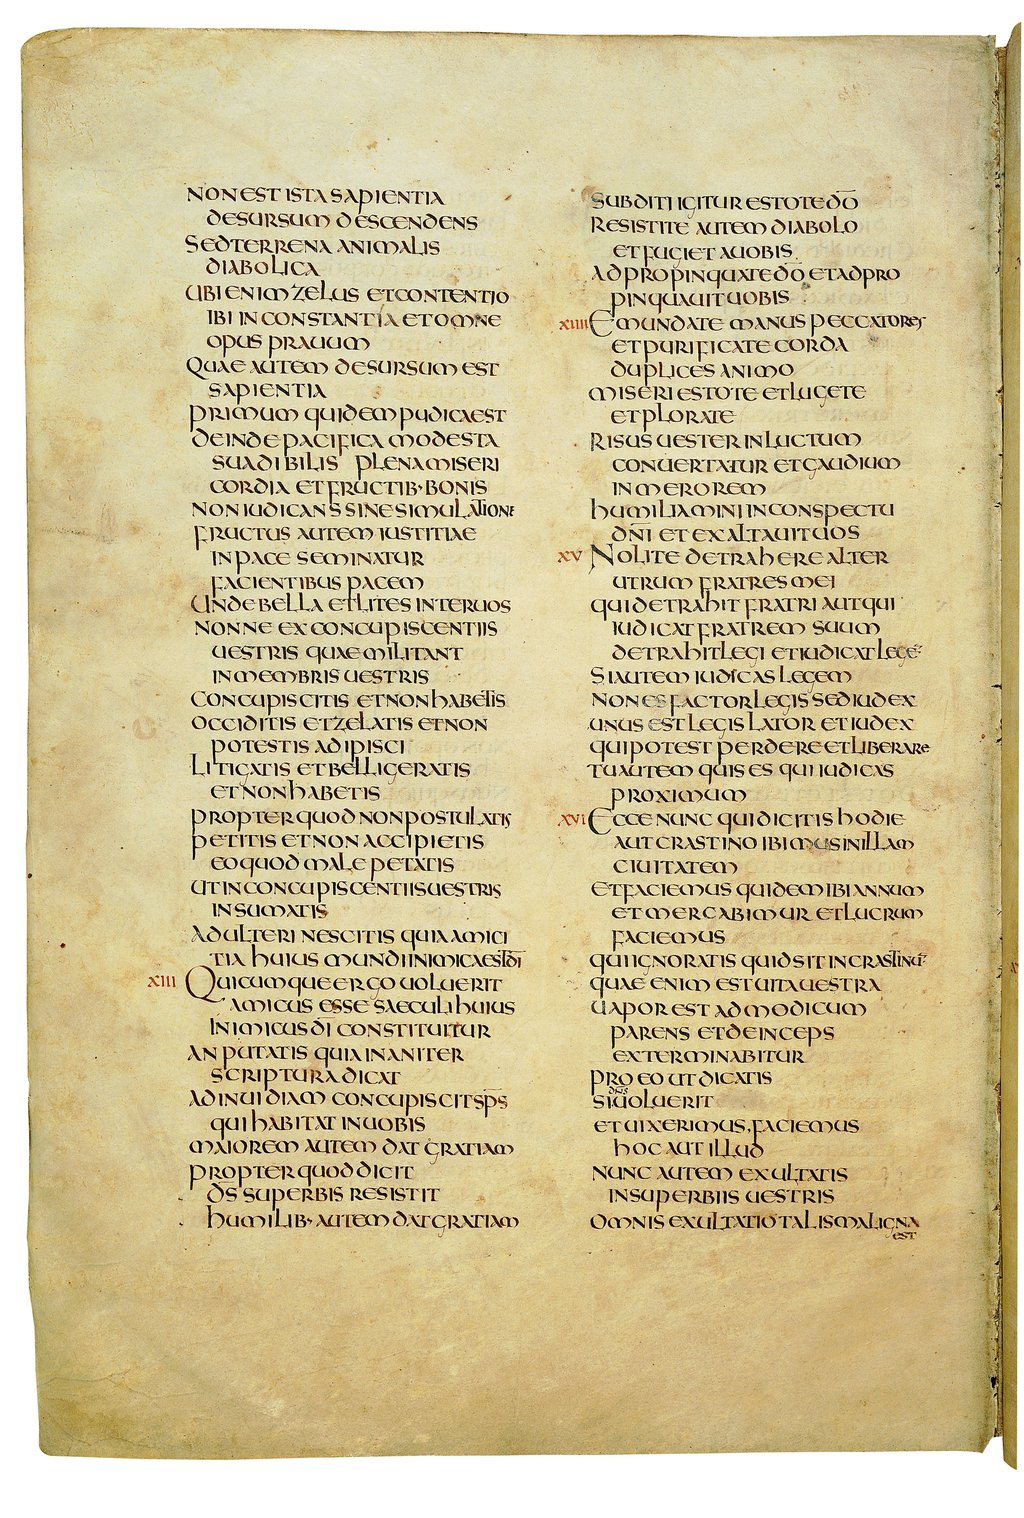 NON EST ISTA SAPIENTIA
DESURSUM DESCENDENS
SED TERRENA ANIMALIS
DIABOLICA
UBI ENIM ZELUS ET CONTENTIO
IBI INCONSTANTIA ET OMNE
OPUS PRAUUM
QUAE AUTEM DESURSUM EST
SAPIENTIA
PRIMUM QUIDEM PUDICA EST
DEINDE PACIFICA MODESTA
SUADIBILIS PLENA MISERI
CORDIA ET FRUCTIB· BONIS
NON IUDICANS SINE SIMULATIONE
FRUCTUS AUTEM IUSTITIAE
IN PACE SEMINATUR
FACIENTIBUS PACEM
UNDE BELLA ET LITES INTER UOS
NONNE EX CONCUPISCENTIIS
UESTRIS QUAE MILITANT
IN MEMBRIS UESTRIS
CONCUPISCITIS ET NON HABETIS
OCCIDITIS ET ZELATIS ET NON
POTESTIS ADIPISCI
LITIGATIS ET BELLIGERATIS
ET NON HABETIS
PROPTER QUOD NON POSTULATIS
PETITIS ET NON ACCIPIETIS
EO QUOD MALE PETATIS
UT IN CONCUPISCENTIIS UESTRIS
INSUMATIS
ADULTERI NESCITIS QUIA AMICI
TIA HUIUS MUNDI INIMICA EST D̄I
XIII QUICUMQUE ERGO UOLUERIT
AMICUS ESSE SAECULI HUIUS
INIMICUS D̄I CONSTITUITUR
AN PUTATIS QUIA INANITER
SCRIPTURA DICAT
AD INUIDIAM CONCUPISCIT SP̄S
QUI HABITAT IN UOBIS
MAIOREM AUTEM DAT GRATIAM
PROPTER QUOD DICIT
D̄S SUPERBIS RESISTIT
HUMILIB· AUTEM DAT GRATIAM
SUBDITI IGITUR ESTOTE D̄O
RESISTITE AUTEM DIABOLO
ET FUGIET A UOBIS
ADPROPINQUATE D̄O ET ADPRO
PINQUAUIT UOBIS
XIIII EMUNDATE MANUS PECCATORES
ET PURIFICATE CORDA
DUPLICES ANIMO
MISERI ESTOTE ET LUGETE
ET PLORATE
RISUS UESTER IN LUCTUM
CONUERTATUR ET GAUDIUM
IN MEROREM
HUMILIAMINI IN CONSPECTU
D̄N̄I ET EXALTAUIT UOS
XV NOLITE DETRAHERE ALTER
UTRUM FRATRES MEI
QUI DETRAHIT FRATRI AUT QUI
IUDICAT FRATREM SUUM
DETRAHIT LEGI ET IUDICAT LEGĒ
SI AUTEM IUDICAS LEGEM
NON ES FACTOR LEGIS SED IUDEX
UNUS EST LEGISLATOR ET IUDEX
QUI POTEST PERDERE ET LIBERARE
TU AUTEM QUIS ES QUI IUDICAS
PROXIMUM
XVI ECCE NUNC QUI DICITIS HODIE
AUT CRASTINO IBIMUS IN ILLAM
CIUITATEM
ET FACIEMUS QUIDEM IBI ANNUM
ET MERCABIMUR ET LUCRUM
FACIEMUS
QUI IGNORATIS QUID SIT IN CRASTINŪ
QUAE ENIM EST UITA UESTRA
UAPOR EST AD MODICUM
PARENS ET DEINCEPS
EXTERMINABITUR
PRO EO UT DICATIS
D̄N̄S
SI UOLUERIT
ET UIXERIMUS, FACIEMUS
HOC AUT ILLUD
NUNC AUTEM EXULTATIS
IN SUPERBIIS UESTRIS
OMNIS EXULTATIO TALIS MALIGNA
EST